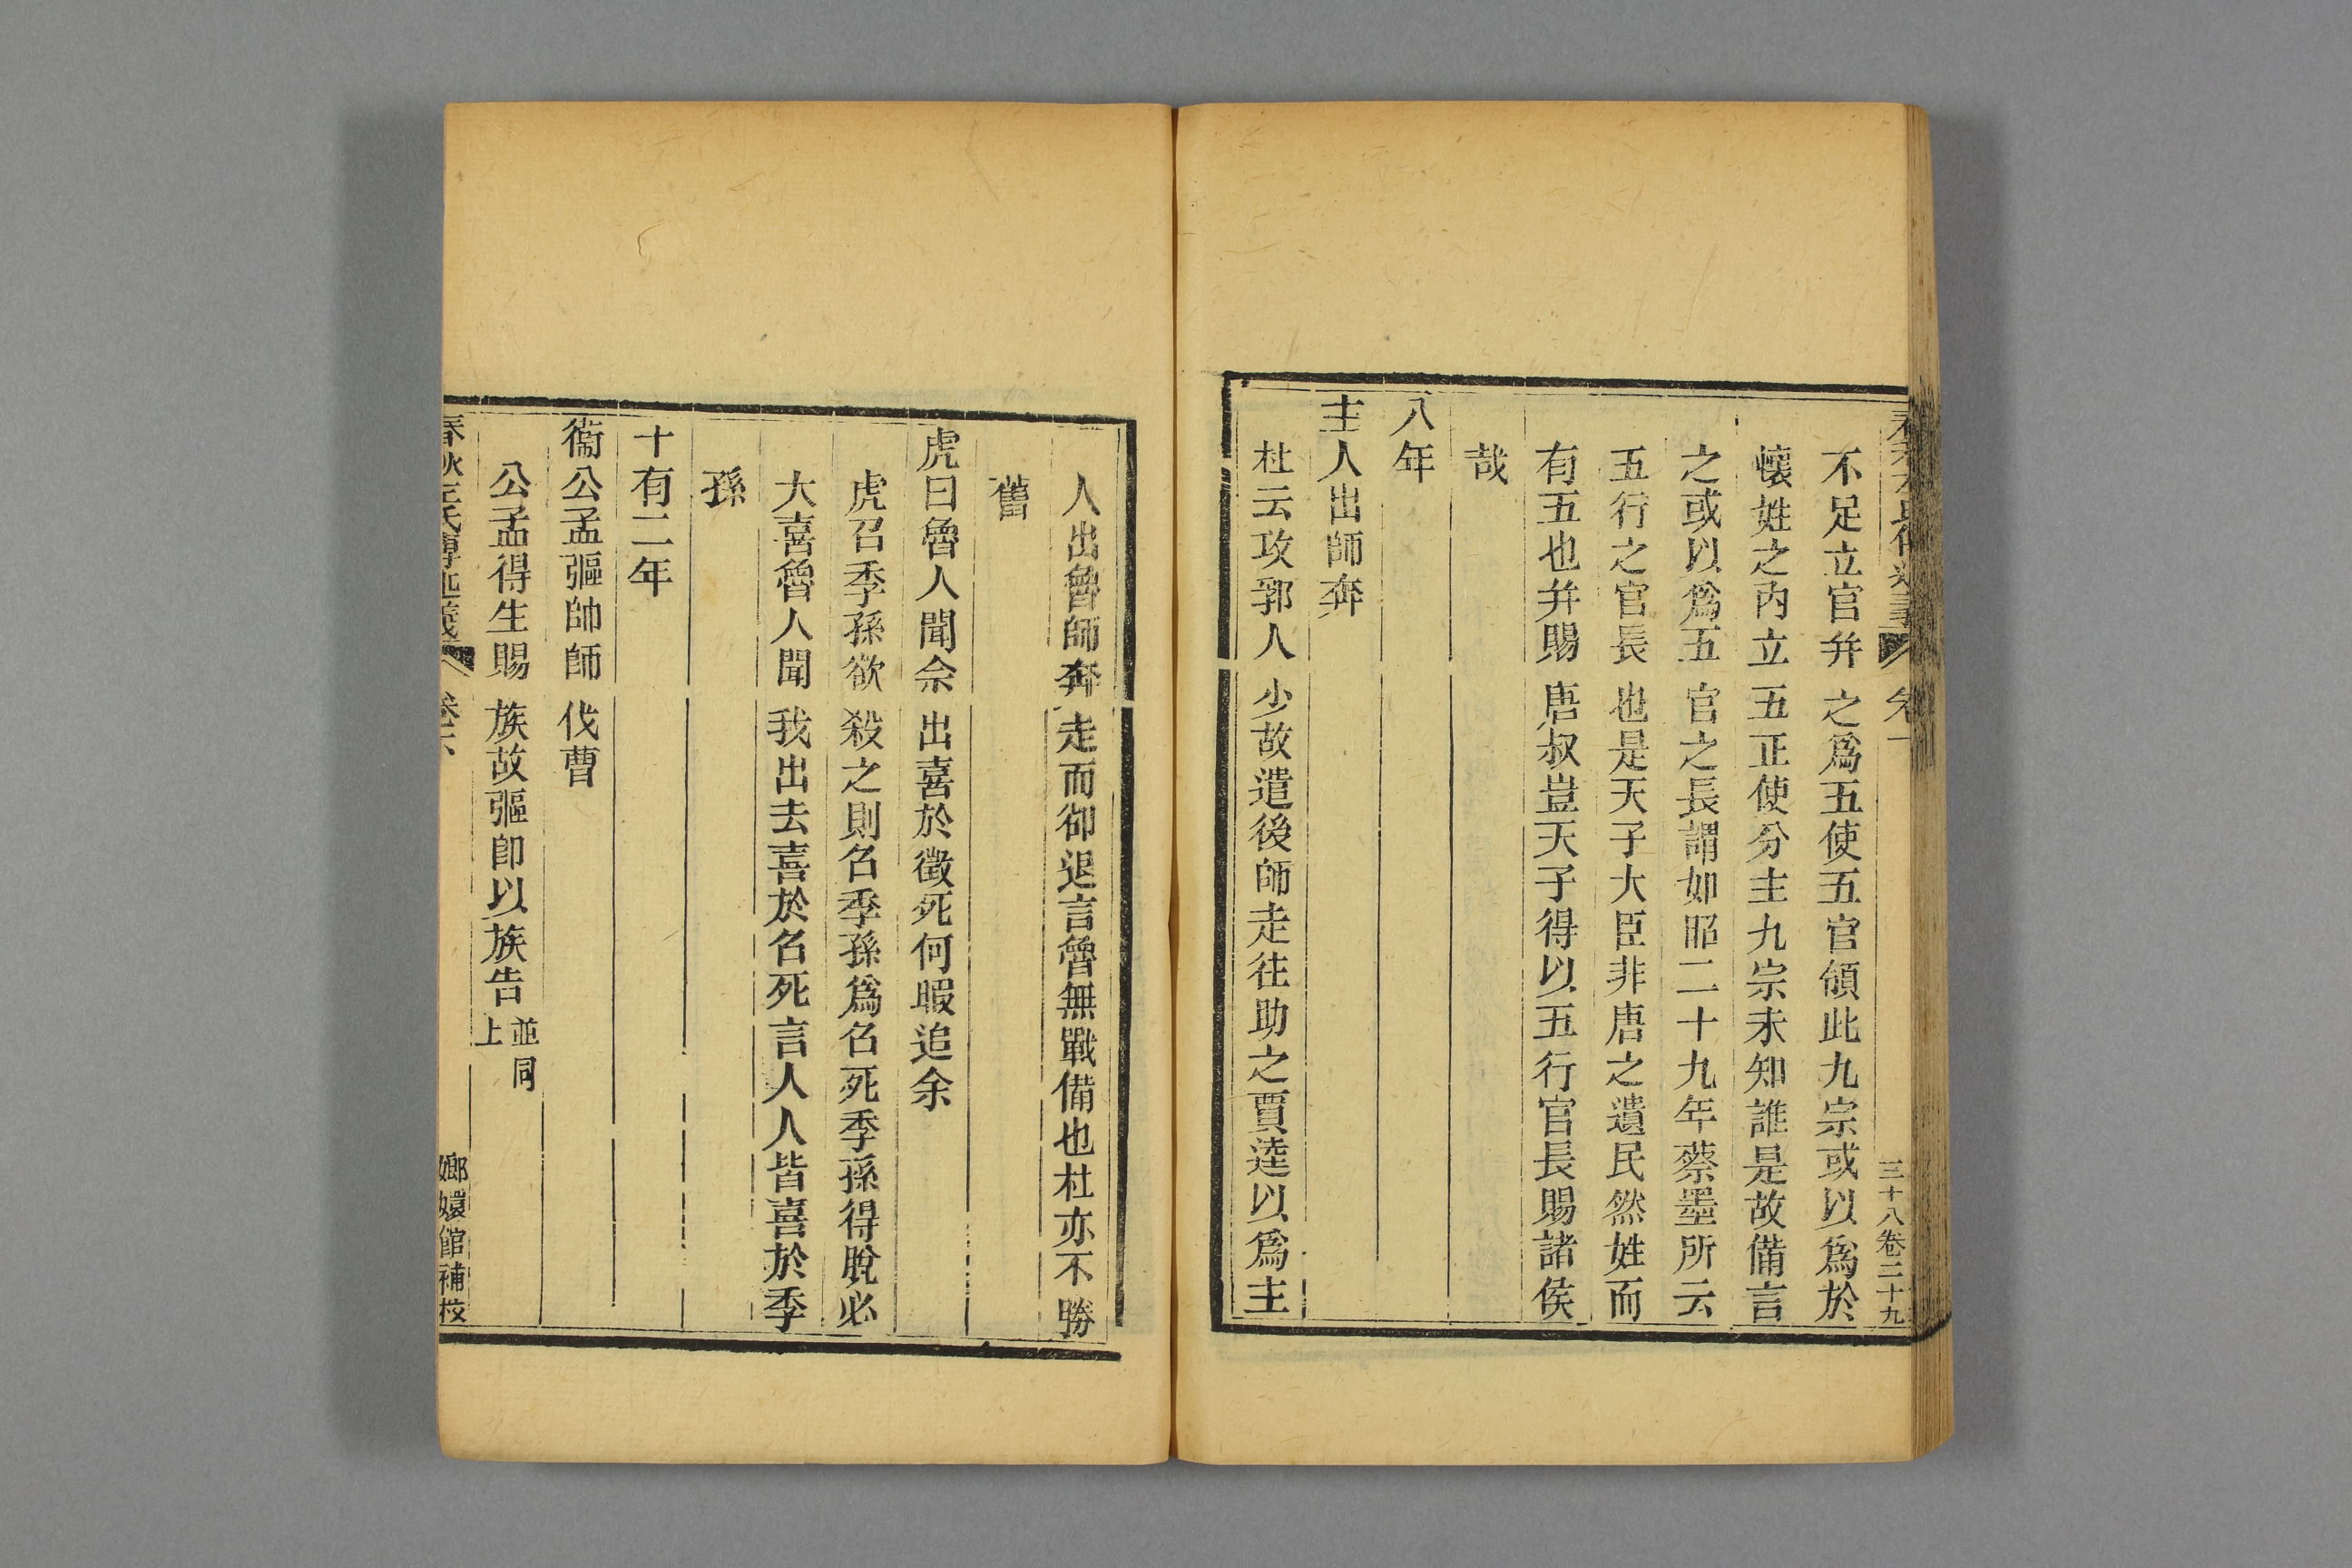 三十八卷二十九
不足立官幷之爲五使五官領此九宗或以爲於
懷姓之內立五正使分主九宗未知誰是故備言
之或以爲五官之長謂如昭二十九年蔡墨所云
五行之官長也是天子大臣非唐之遺民然姓而
有五也幷賜唐叔豈天子得以五行官長賜諸侯
哉
八年
主人出師奔
杜云攻郛人少故遣後師走往助之賈逵以爲主
人出魯師奔走而卻退言魯無戰備也杜亦不勝
舊
虎曰魯人聞余出喜於徵死何暇追余
虎召季孫欲殺之則名季孫爲名死季孫得脫必
大喜魯人聞我出去喜於名死言人人皆喜於季
孫
十有二年
衞公孟彄帥師伐曹
公孟得生賜族故彄卽以族告並同上
春秋左氏傳述義 嫏嬛館補校